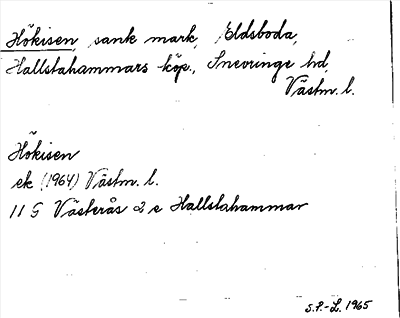 Hökisen, sank mark, Eldsboda,
Hallstahammars köp., Snevringe hd,
Västm. l.
Hökisen
ek (1964) Västm. l.
11 G Västerås 2 e Hallstahammar
S.P.-L. 1965